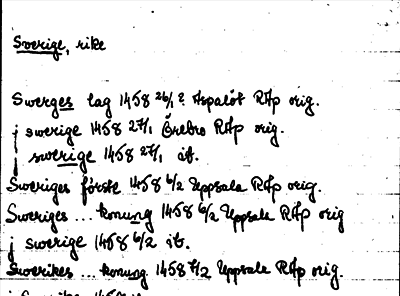 Sverige, rike
Swerges lag 1458 26/1 ? Aspalöt RAp orig.
j swerige 1458 27/1 Örebro RAp orig.
j swerige 1458 27/1 ib.
Sweriges första 1458 6/2 Uppsala RAp orig.
Sweriges ... konung 1458 6/2 Uppsala RAp orig
j swerige 1458 6/2 ib.
Swerikes ... konung 1458 7/2 Uppsala RAp orig.